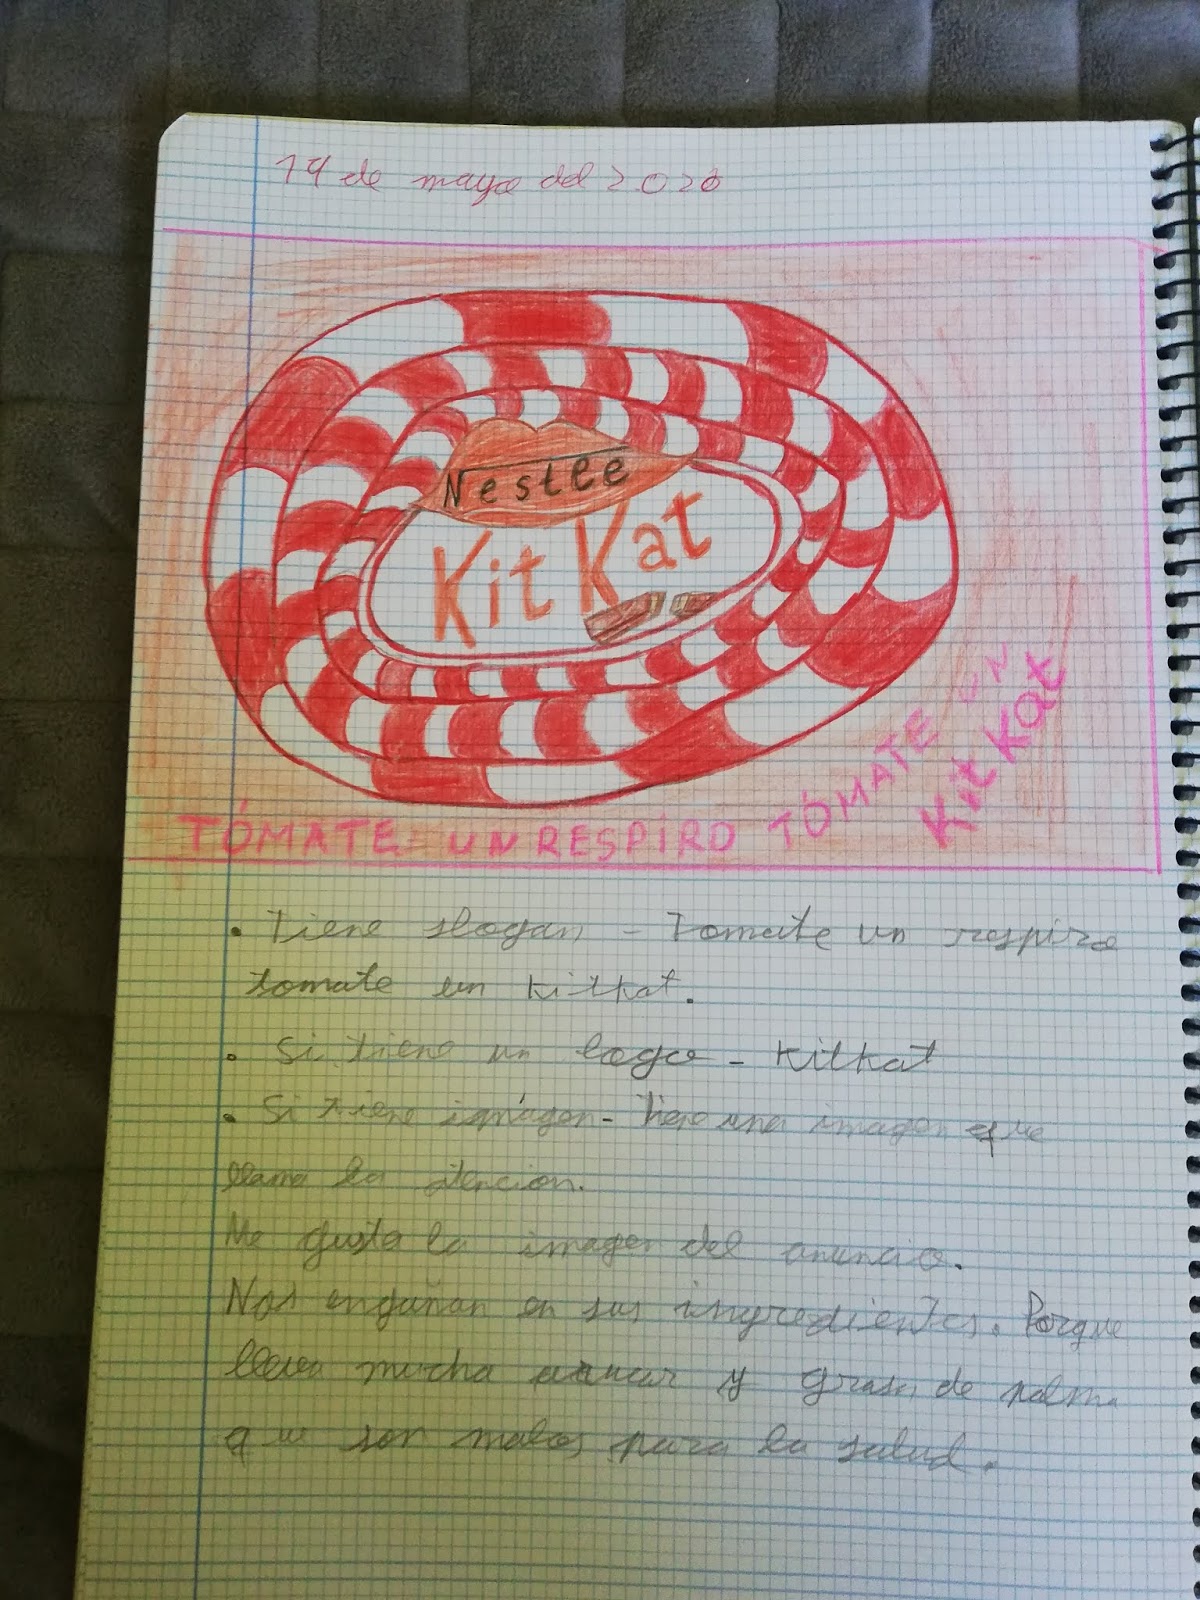 19 de mayo del 2020
Nestle
Kit Kat
TÓMATE UN RESPIRO TÓMATE UN
Kit Kat
• Tiene slogan - Tomate un respiro
tomate un kitkat.
• Si tiene un logo - Kitkat
• Si tiene imágen - Tiene una imagen que
llama la atencion.
Me gusta la imagen del anuncio.
Nos engañan en sus ingredientes. Porque
lleva mucha azucar y grasa de palma
que son malos para la salud.